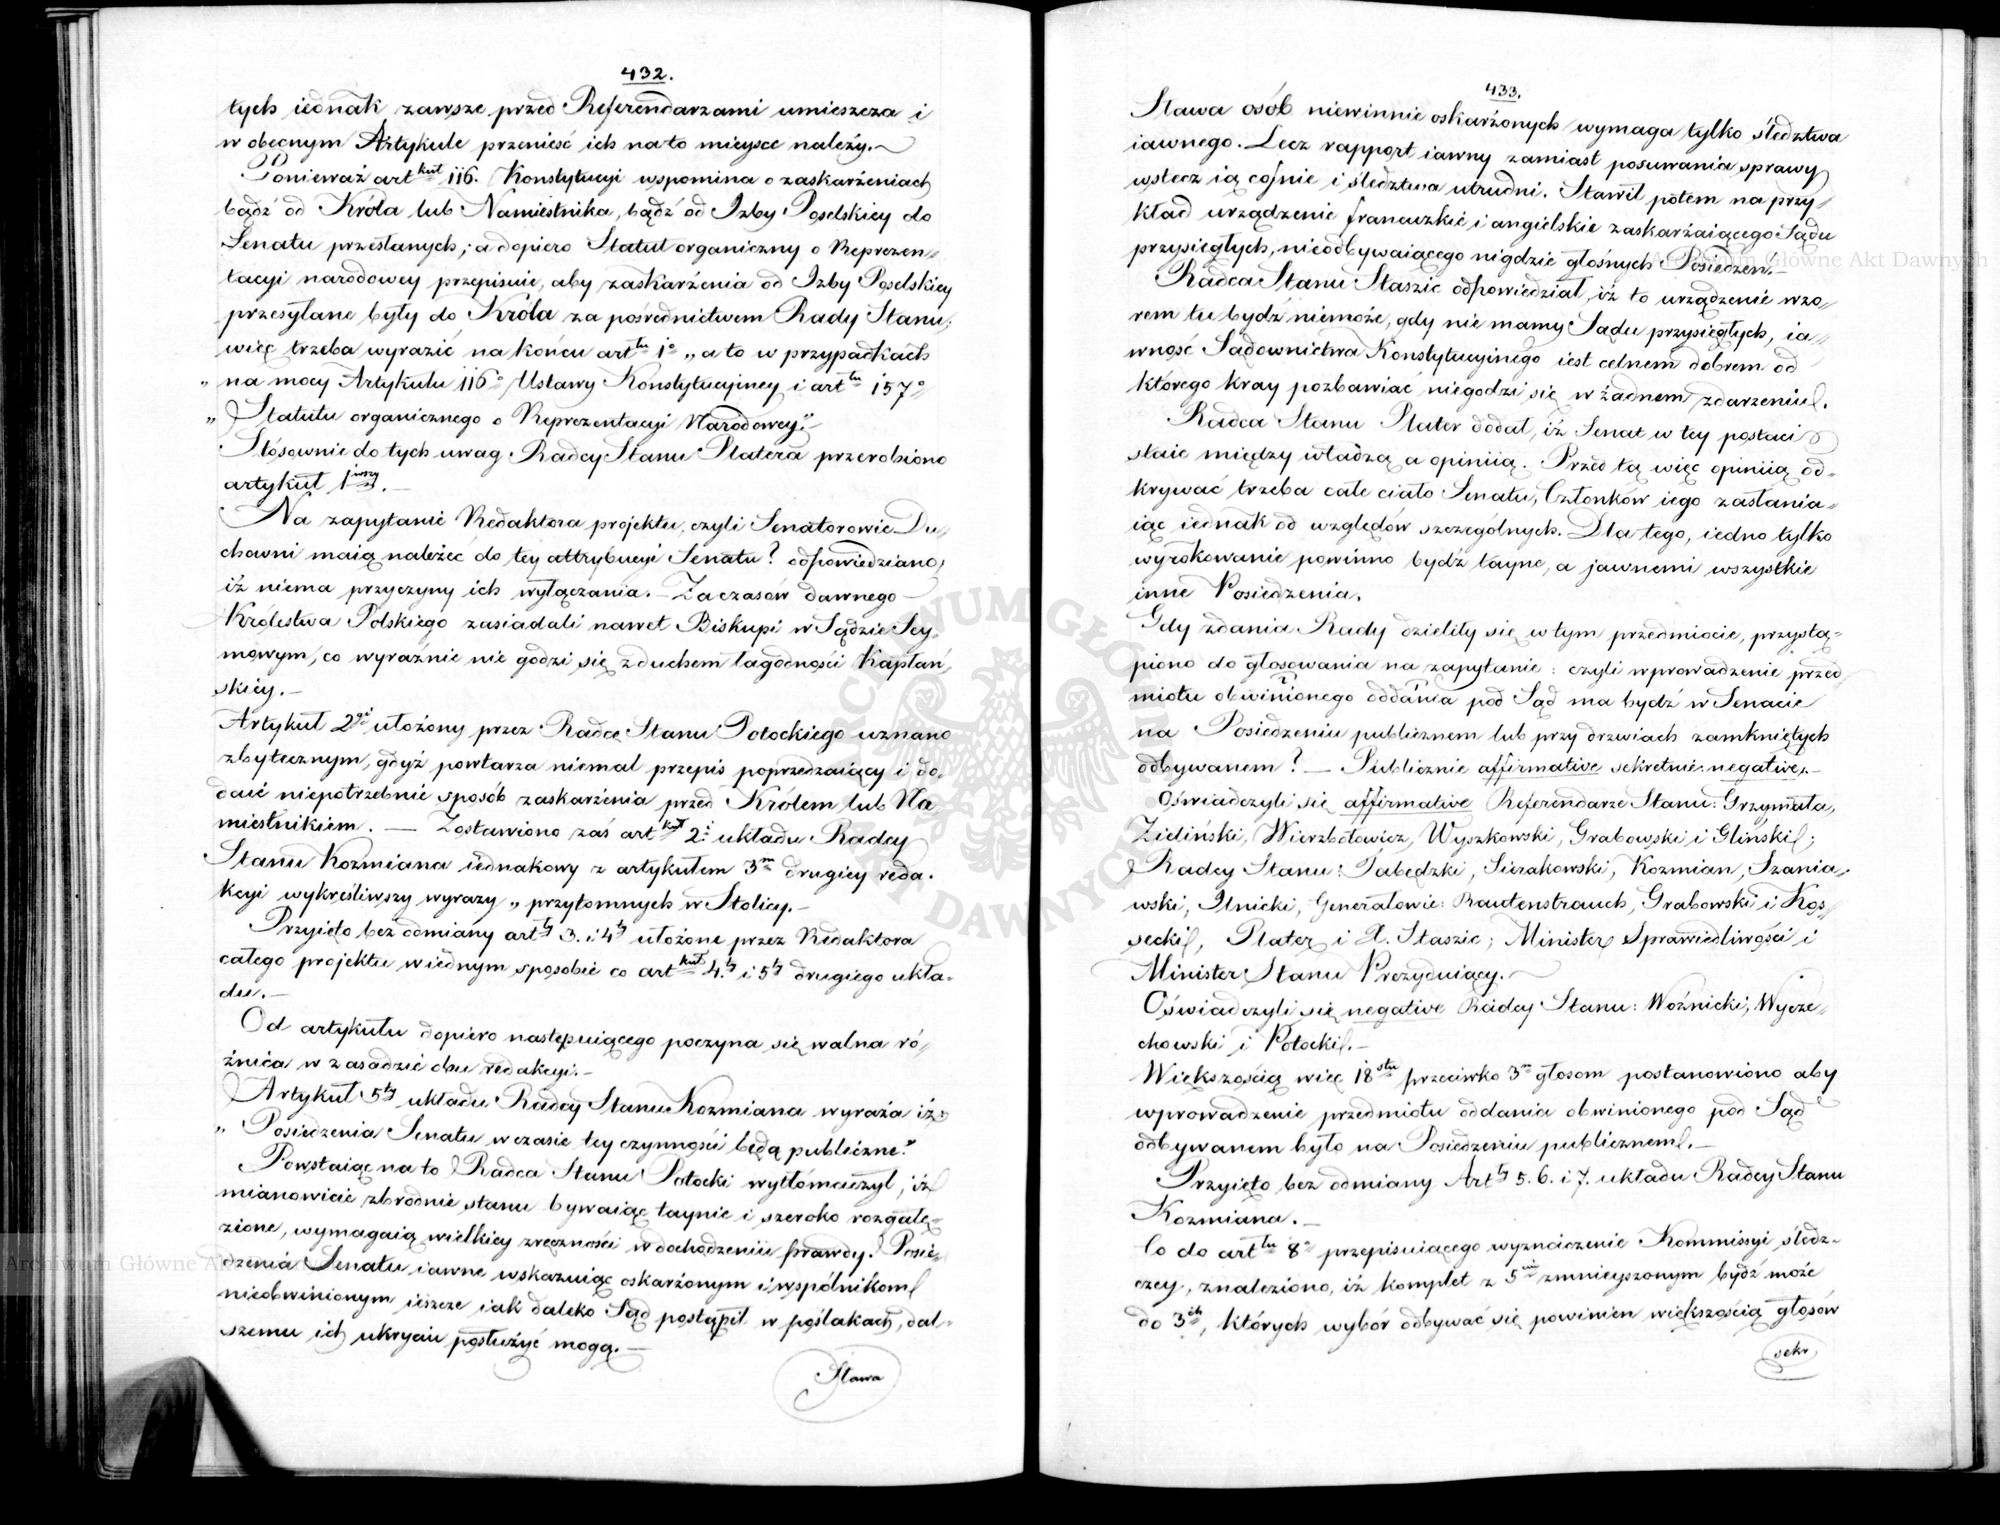 432.
tych iednak zawsze przed Referendarzami umieszcza i
w obecnym Artykule przenieść ich na to mieysce należy.—
Ponieważ art kuł 116. Konstytucyi wspomina o zaskarżeniach
bądź od Króla lub Namiestnika, bądź od Izby Poselskiey do
Senatu przesłanych; a dopiero Statut organiczny o Reprezen„
tacyi narodowey przepisuie, aby zaskarżenia od Izby Poselskiey
przesyłane były do Króla za pośrednictwem Rady Stanu;
więc trzeba wyrazić na końcu art łu 1o „a to w przypadkach
„ na mocy Artykułu 116o Ustawy Konstytucyiney i art łu 157o
„ Statutu organicznego o Reprezentacyi Narodowey."—
Stosownie do tych uwag Radcy Stanu Platera przerobiono
artykuł 1wszy.—
Na zapytanie Redaktora projektu, czyli Senatorowie Du„
chowni maią należeć do tey attrybucyi Senatu? odpowiedziano,
iż niema przyczyny ich wyłączania.— Za czasów dawnego
Królestwa Polskiego zasiadali nawet Biskupi w Sądzie Sey„
mowym, co wyraźnie nie godzi się z duchem łagodności Kapłań„
skiey.—
Artykuł 2gi ułożony przez Radcę Stanu Potockiego uznano
zbytecznym, gdyż powtarza niemal przepis poprzedzaiący i do„
daie niepotrzebnie sposób zaskarżenia przed Królem lub Na
miestnikiem. — Zostawiono zaś art kuł 2i układu Radcy
Stanu Kozmiana iednakowy z artykułem 3m drugiey reda„
kcyi wykreśliwszy wyrazy „przytomnych w Stolicy.—
Przyięto bez odmiany art ły 3. i 4ty ułożone przez Redaktora
całego projektu w iednym sposobie co art kuł 4.ty i 5ty drugiego ukła„
du.—
Od artykułu dopiero następuiącego poczyna się walna ró„
żnica w zasadzie obu redakcyi.—
Artykuł 5ty układu Radcy Stanu Kozmiana wyraża iż:
„ Posiedzenia Senatu w czasie tey czynności będą publiczne."
Powstaiąc na to Radca Stanu Potocki wytłómaczył, iż
mianowicie zbrodnie stanu bywaiąc taynie i szeroko rozgałę„
zione, wymagaią wielkiey zręczności w dochodzeniu prawdy. Posie„
dzenia Senatu iawne wskazuiąc oskarżonym i wspólnikom
nieobwinionym ieszcze iak daleko Sąd postąpił w poślakach, dal„
szemu ich ukryciu posłużyć mogą.—
Sława
433.
Sława osób niewinnie oskarżonych wymaga tylko śledztwa
iawnego. Lecz rapport iawny zamiast posuwania sprawy
wstecz ią cofnie i śledztwa utrudni. Stawił potem na przy„
kład urządzenie francuzkie i angielskie zaskarżaiącego Sądu
przysięgłych, nieodbywaiącego nigdzie głośnych Posiedzeń.—
Radca Stanu Staszic odpowiedział, iż to urządzenie wzo„
rem tu bydź niemoże, gdy nie mamy Sądu przysięgłych, ia„
wność Sądownictwa Konstytucyinego iest celnem dobrem od
którego kray pozbawiać niegodzi się w żadnem zdarzeniu.
Radca Stanu Plater dodał, iż Senat w tey postaci
staie między władzą a opiniią. Przed tą więc opiniią od„
krywać trzeba całe ciało Senatu, Członków iego zasłania„
iąc iednak od względów szczególnych. Dla tego, iedno tylko
wyrokowanie powinno bydź tayne, a jawnemi wszystkie
inne Posiedzenia.
Gdy zdania Rady dzieliły się w tym przedmiocie, przystą„
piono do głosowania na zapytanie: czyli wprowadzenie przed„
miotu obwinionego oddania pod Sąd ma bydź w Senacie
na Posiedzeniu publicznem lub przy drzwiach zamkniętych
odbywanem? — Publicznie affirmative sekretnie negative.—
Oświadczyli się affirmative Referendarze Stanu: Grzymała,
Zieliński, Wierzbołowicz, Wyszkowski, Grabowski i Gliński;
Radcy Stanu: Łabędzki, Sierakowski, Kozmian, Szania„
wski, Ilnicki, Generałowie: Rautenstrauch, Grabowski i Kos„
secki, Plater i X. Staszic; Minister Sprawiedliwości i
Minister Stanu Prezyduiący.—
Oświadczyli się negative Radcy Stanu: Woźnicki, Wycze„
chowski i Potocki.—
Większością więc 18stu przeciwko 3m głosom postanowiono aby
wprowadzenie przedmiotu oddania obwinionego pod Sąd
odbywanem było na Posiedzeniu publicznem.—
Przyięto bez odmiany Art ły 5. 6. i 7. układu Radcy Stanu
Kozmiana.—
Co do art łu 8o przepisuiącego wyznaczenie Kommissyi śled„
czey, znaleziono, iż komplet z 5ciu zmnieyszonym bydź może
do 3ch, których wybór odbywać się powinien większością głosów
sekr